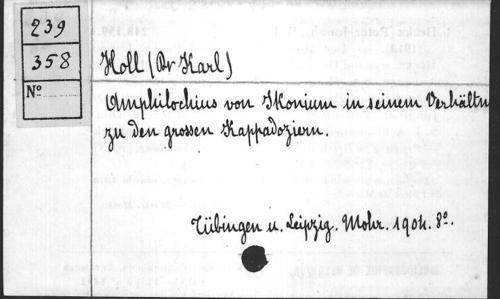 239
358
No
Holl (Dr Karl)
Amphilochius von Ikonium in seinem Verhältn
zu den grossen Kappadoziern.
Tübingen u. Leipzig. Mohr. 1904. 8o.